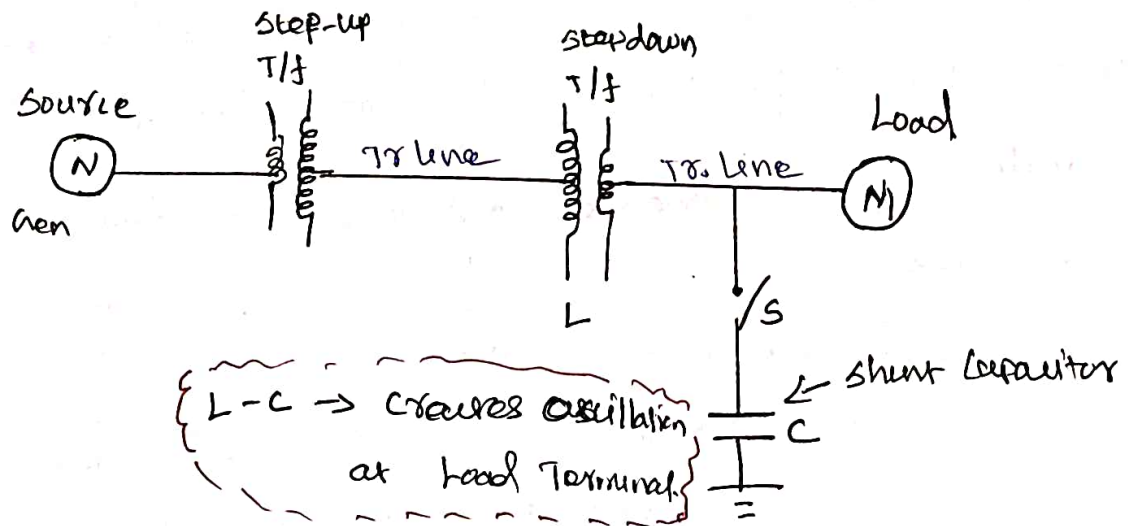 Step-up
T/f
Stepdown
T/f
Source
Load
N
Tr line
Tr. Line
N
Gen
L
S
Shunt Capacitor
C
L-C → Creaures oscillation
at Load Terminal.